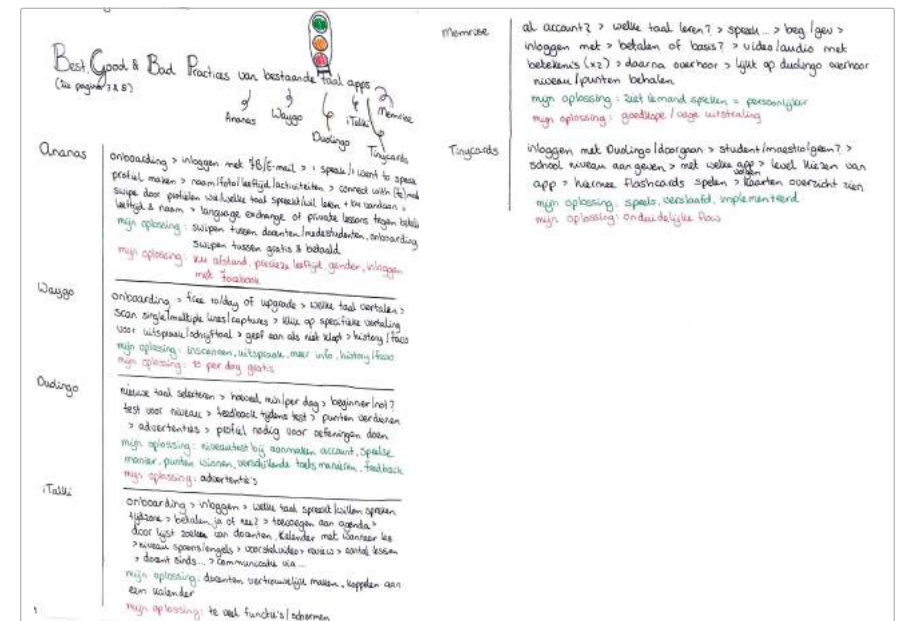 Best, Good & Bad Practices van bestaande taal apps
(zie pagina 7 & 8)
Ananas
Waygo
Duolingo
iTalki
Tinycards
Memrise
Ananas
onboarding > inloggen met FB/E-mail > i speak/i want to speak
profiel maken > naam/foto/leeftijd/activiteiten > connect with
swipe door profielen wie/welke taal spreekt/wil leren + km vandaan +
leeftijd & naam > language exchange of private lessons tegen
mijn oplossing: swipen tussen docenten/medestudenten, onboarding,
swipen tussen gratis & betaald
mijn oplossing: km afstand, precieze leeftijd, gender, inloggen
met facebook
Waygo
onboarding > free 10/day of upgrade > welke taal vertalen >
scan single/multiple lines/captures > klik op specifieke vertaling
voor uitspraak/schrijftaal > geef aan als niet klopt > history/favs
mijn oplossing: inscannen, uitspraak, meer info, history/favs
mijn oplossing: 10 per day gratis
Duolingo
nieuwe taal selecteren > hoeveel min/per dag > beginner/not?
test voor niveau > feedback tijdens test > punten verdienen
> advertenties > profiel nodig voor oefeningen doen
mijn oplossing: niveautest bij aanmaken account, speelse
manier, punten winnen, verschillende toets manieren, feedback
mijn oplossing: advertentie's
iTalki
onboarding > inloggen > welke taal spreekt/willen spreken
tijdzone > betalen ja of nee? > toevoegen aan agenda >
door lijst zoeken van docenten, kalender met wanneer les
> niveau spaans/engels > voorstelvideo > review > aantal lessen
> docent sinds... > communicatie via...
mijn oplossing: docenten vertrouwelijk maken, koppelen aan
een kalender
mijn oplossing: te veel functie's/schermen
Memrise
al account? > welke taal leren? > spreek... > beg/gev >
inloggen met > betalen of basis? > video/audio met
betekenis (x2) > daarna overhoor > lijkt op duolingo overhoor
niveau/punten behalen
mijn oplossing: ziet iemand spreken = persoonlijker
mijn oplossing: goedkope/vage uitstraling
Tinycards
inloggen met Duolingo/doorgaan > student/maestro/geen? >
school niveau aangeven > met welke app > level kiezen van
app > hiermee flashcards spelen > kaarten overzicht zien
mijn oplossing: speels, verslaafd, implementeerd
mijn oplossing: onduidelijke flow